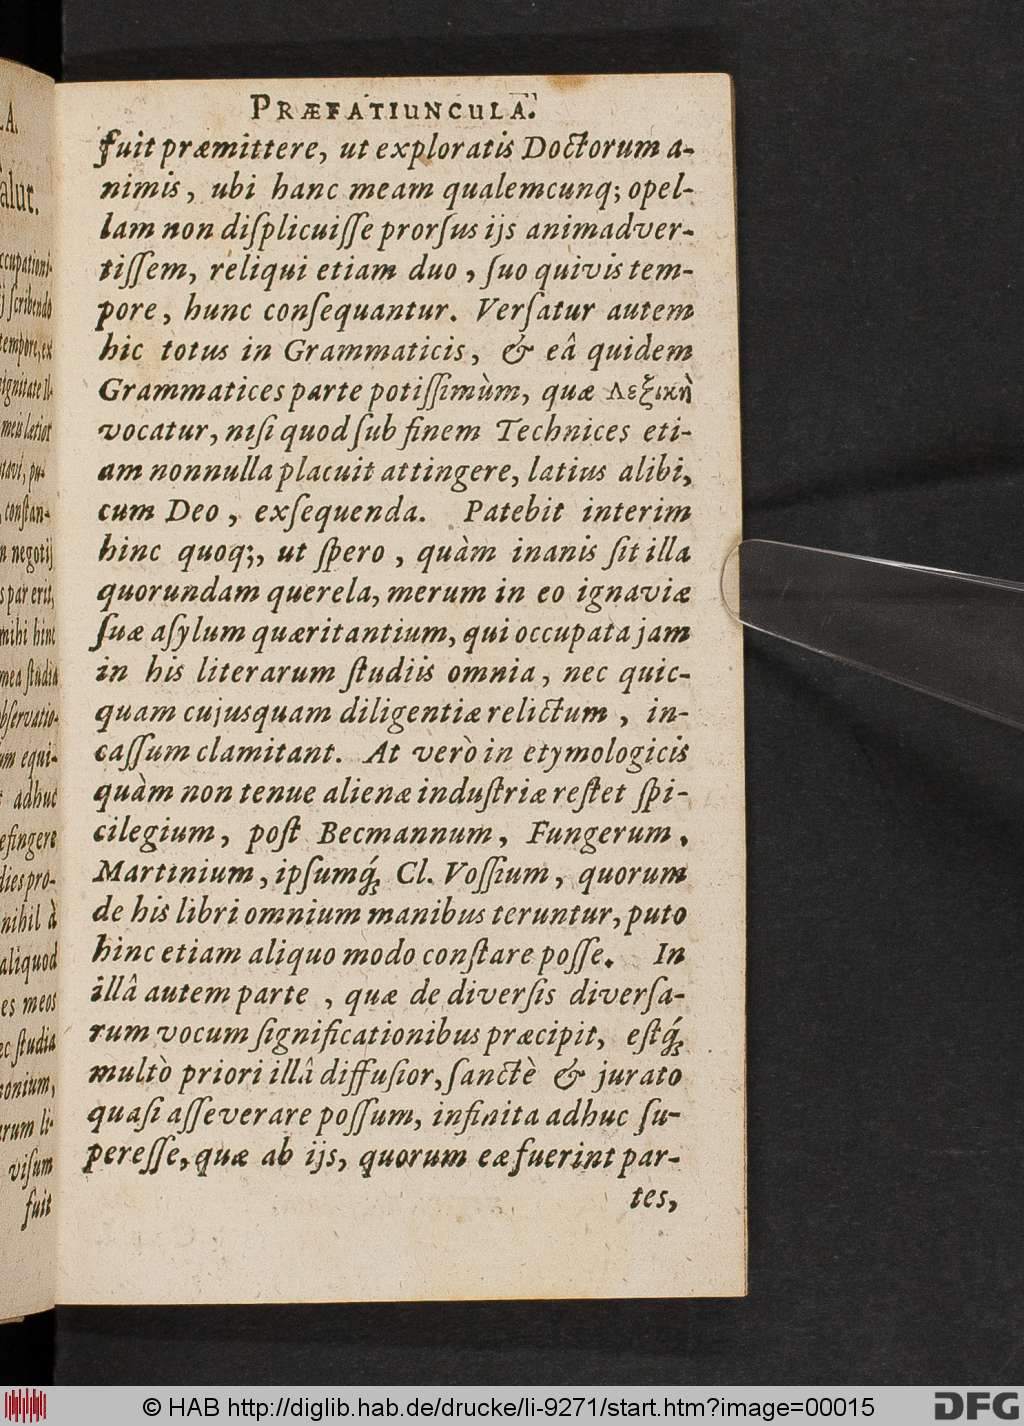 PRÆFATIUNCULA.
fuit præmittere, ut exploratis Doctorum a-
nimis, ubi hanc meam qualemcunq; opel-
lam non diſplicuiſſe prorſus ijs animadver-
tiſſem, reliqui etiam duo, ſuo quivis tem-
pore, hunc conſequantur. Verſatur autem
hic totus in Grammaticis, & eâ quidem
Grammatices parte potiſſimùm, quæ Λεξικὴ
vocatur, niſi quod ſub finem Technices eti-
am nonnulla placuit attingere, latius alibi,
cum Deo, exſequenda. Patebit interim
hinc quoq;, ut ſpero, quàm inanis ſit illa
quorundam querela, merum in eo ignaviæ
ſuæ aſylum quæritantium, qui occupata jam
in his literarum ſtudiis omnia, nec quic-
quam cujusquam diligentiæ relictum, in-
caſſum clamitant. At verò in etymologicis
quàm non tenue alienæ induſtriæ reſtet ſpi-
cilegium, poſt Becmannum, Fungerum,
Martinium, ipſumq́; Cl. Voſſium, quorum
de his libri omnium manibus teruntur, puto
hinc etiam aliquo modo conſtare poſſe. In
illâ autem parte, quæ de diverſis diverſa-
rum vocum ſignificationibus præcipit, eſtq́;
multò priori illâ diffuſior, ſanctè & jurato
quaſi aſſeverare poſſum, infinita adhuc ſu-
pereſſe, quæ ab ijs, quorum eæ fuerint par-
tes,
© HAB http://diglib.hab.de/drucke/li-9271/start.htm?image=00015
DFG